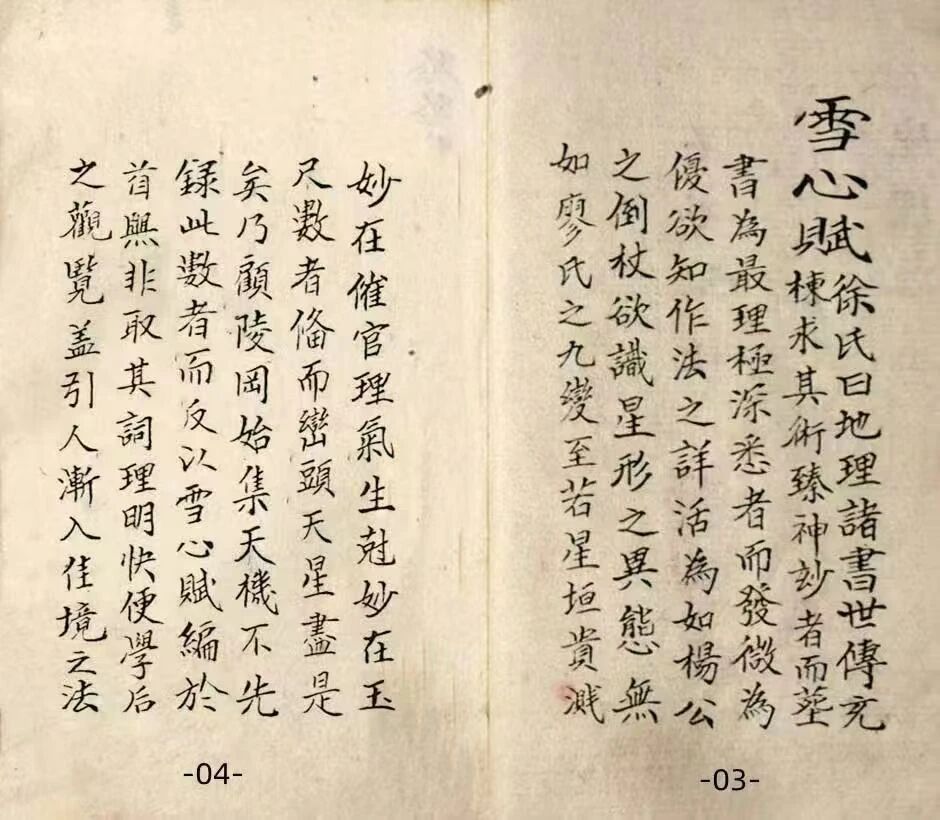 雪心賦
徐氏曰地理諸書世傳充
棟求其術臻神妙者而塟
書為最理極深悉者而發微為
優欲知作法之詳活為如楊公
之倒杖欲識星形之異態無
如廖氏之九變至若星垣貴溅
-03-
妙在催官理氣生尅妙在玉
尺數者俻而巒頭天星盡是
矣乃顧陵岡始集天機不先
録此數者而反以雪心賦編於
首與非取其詞理明快便學后
之觀覽盖引人漸入佳境之法
-04-